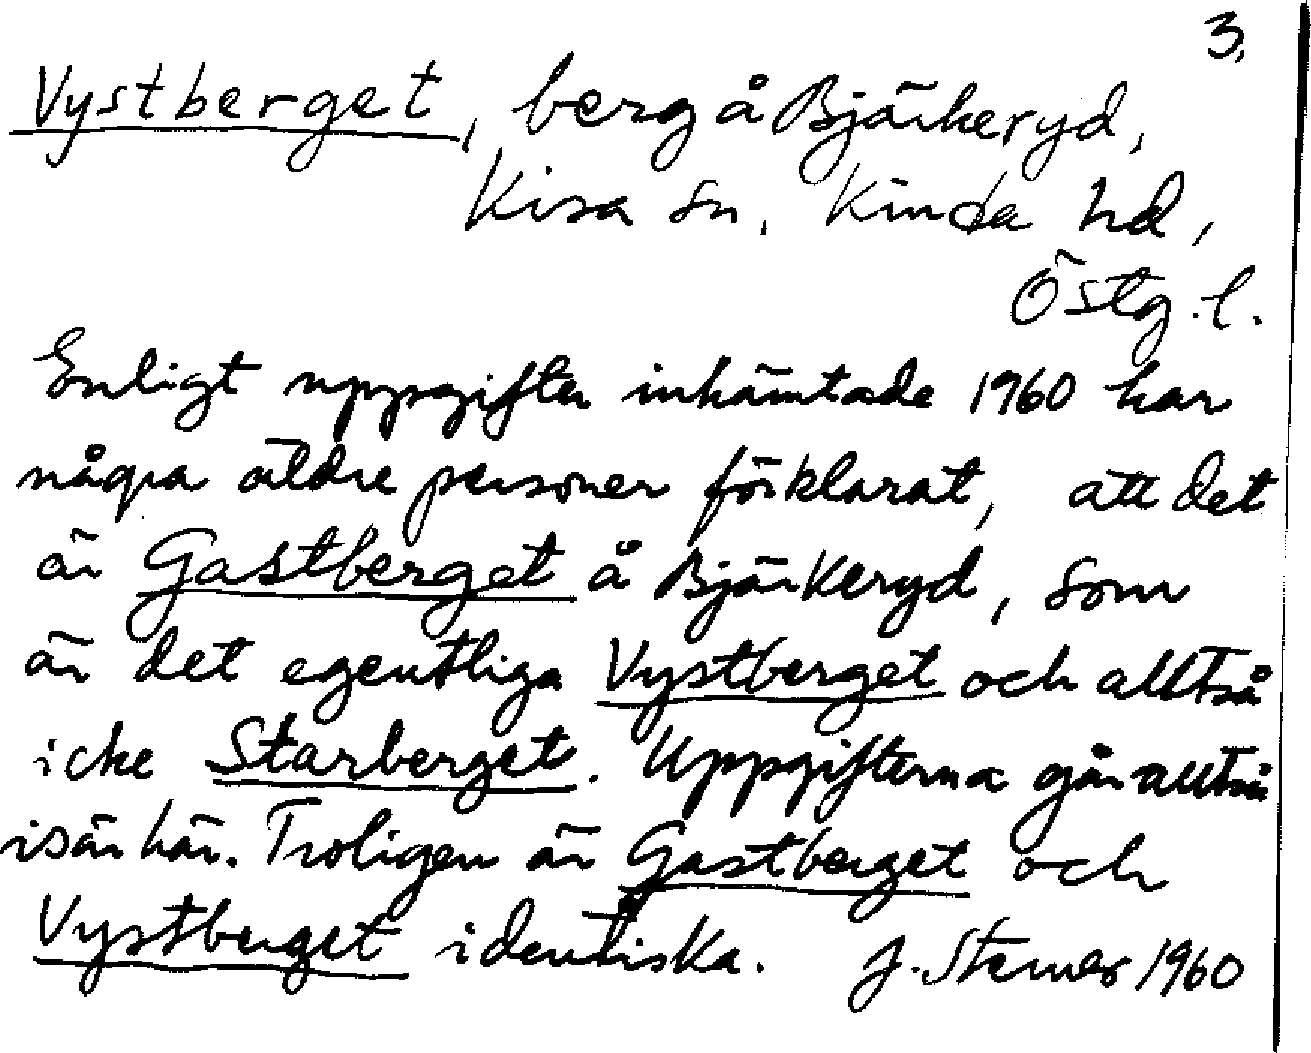 3.
Vystberget, berg å Bjärkeryd,
Kisa sn, Kinda hd,
Östg. l.
Enligt uppgifter inhämtade 1960 har
några äldre personer förklarat, att det
är Gastberget å Bjärkeryd, som
är det egentliga Vystberget och alltså
icke Starberget. Uppgifterna går alltså
isär här. Troligen är Gastberget och
Vystberget identiska. J. Sterner 1960